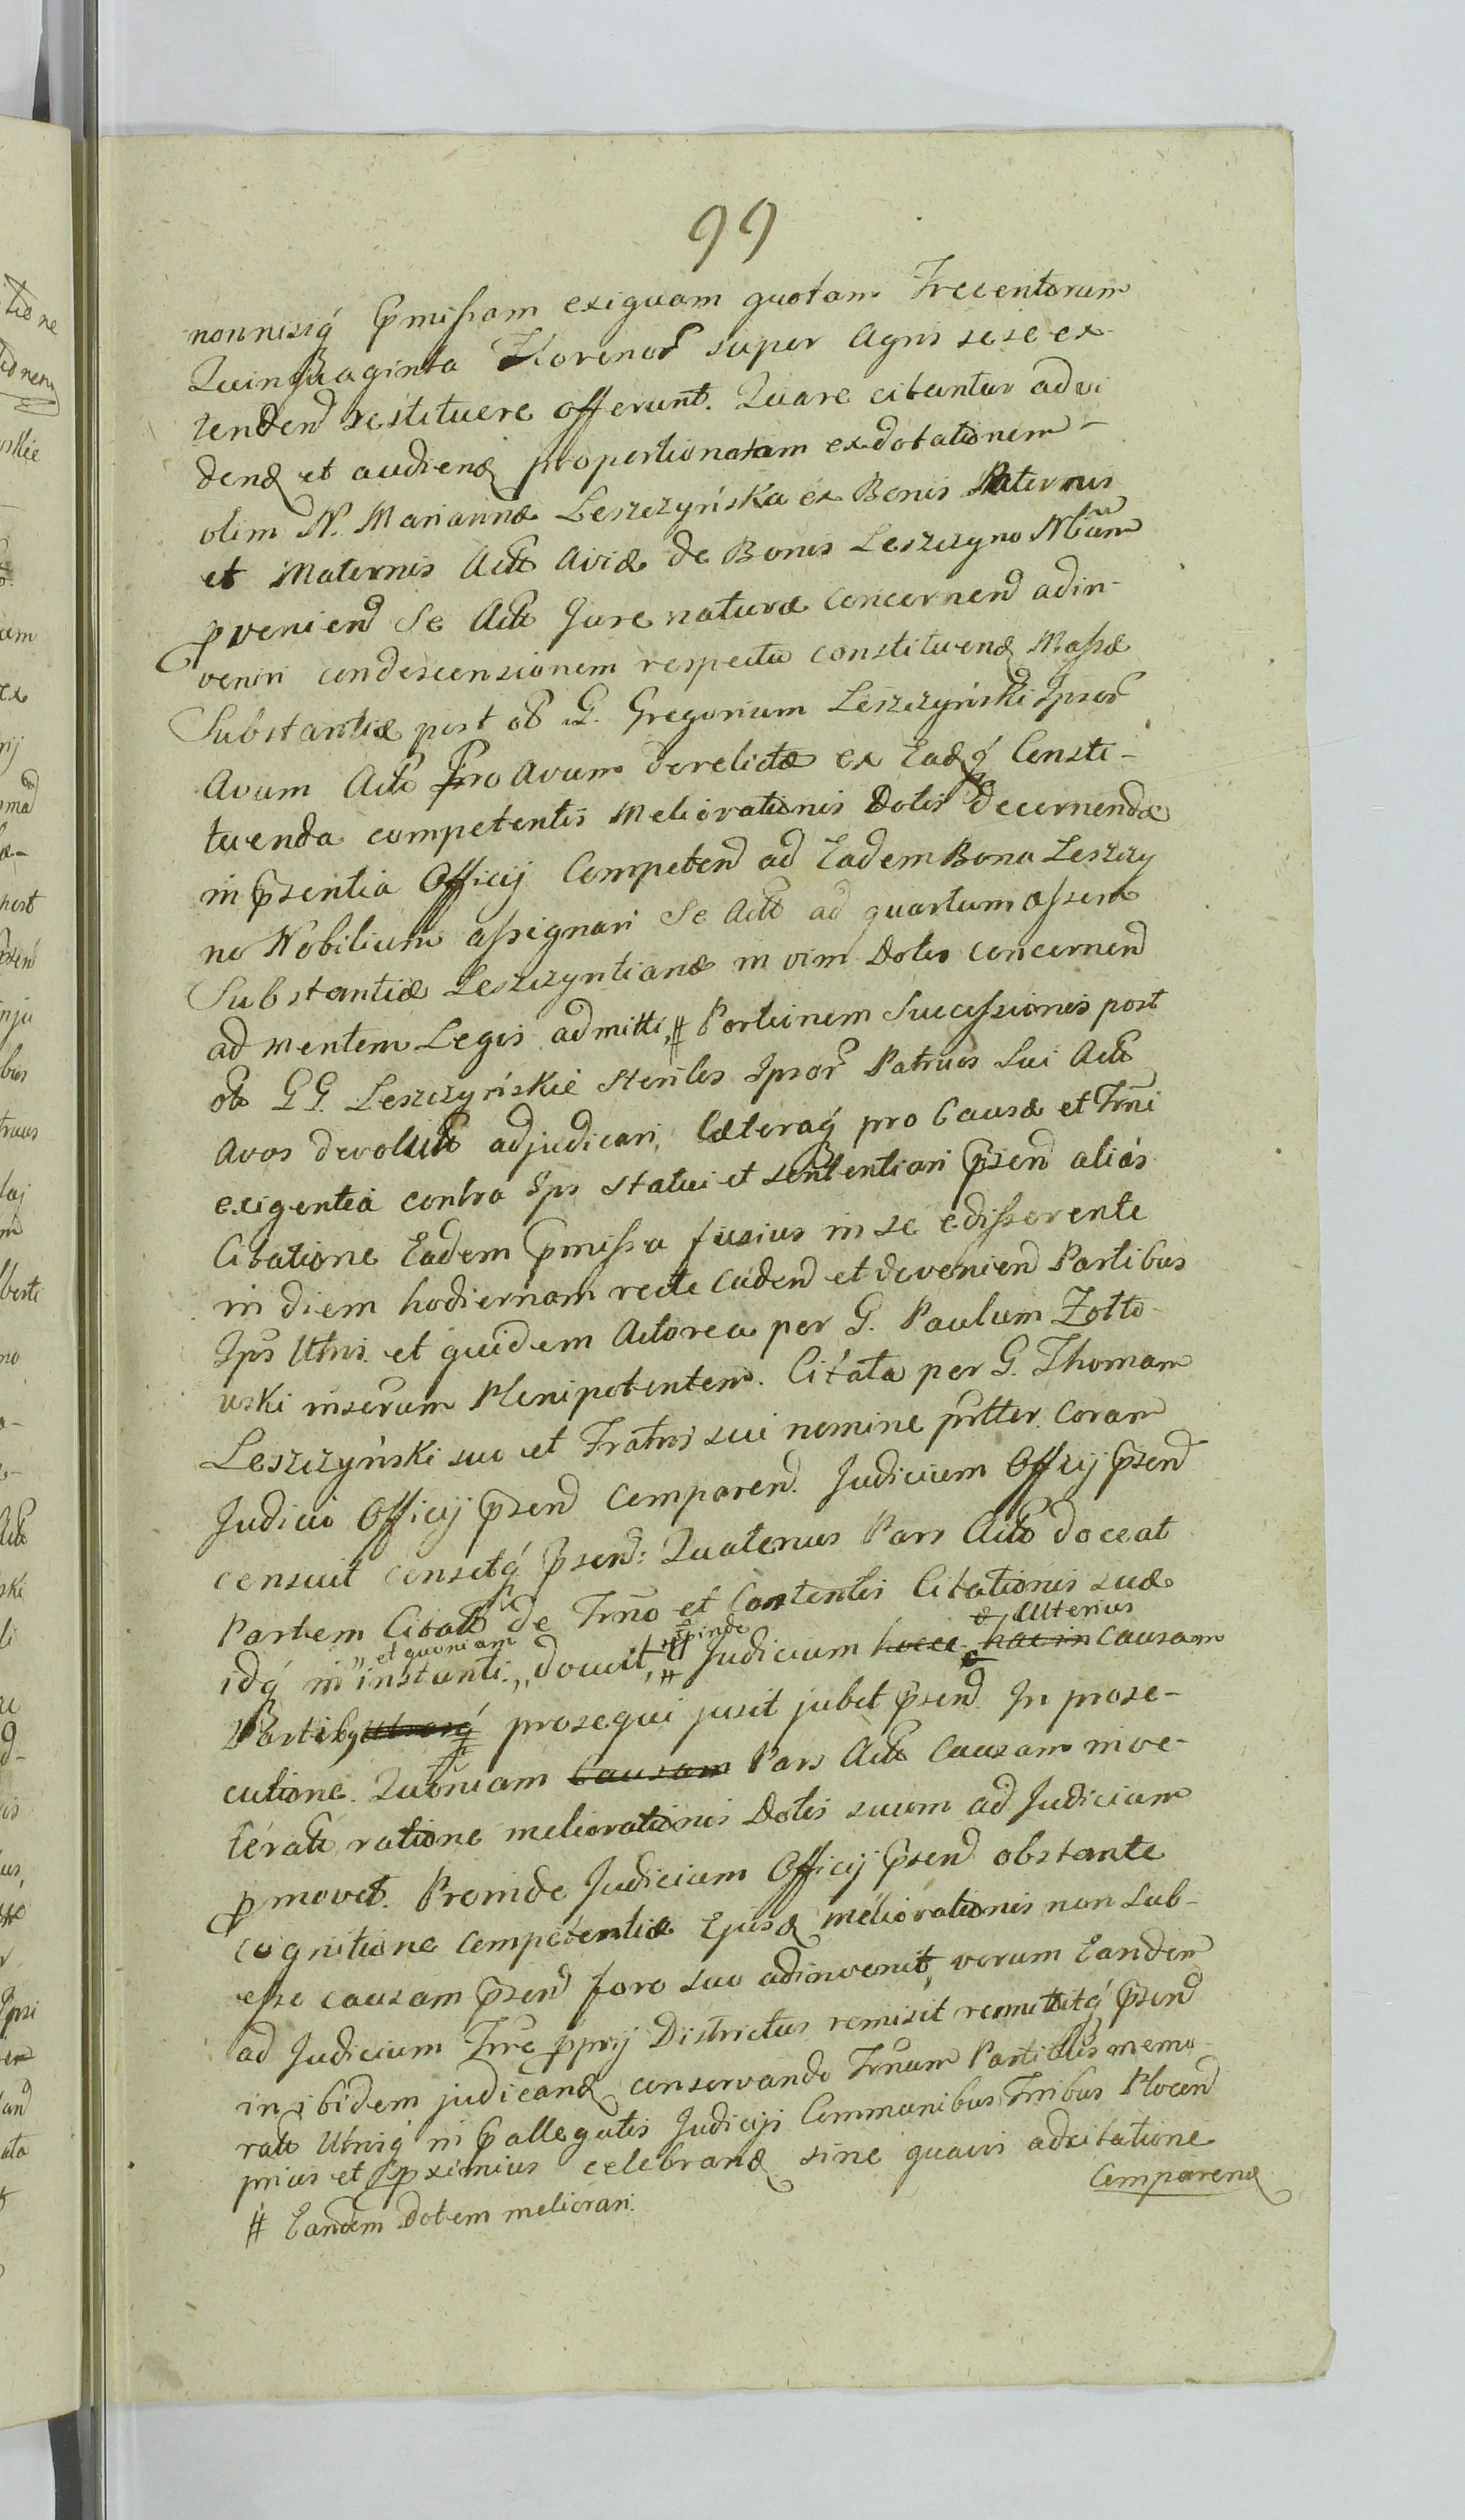 99
nonnisiq́ p̃missam exiguam quotam Trecentorum
Quinquaginta Florenor̃ super Agris sese ex-
tenden̄ restituere offerunt. Quare citantur ad vi
dend et audiend proportionatam exdotationem
olim N. Mariannæ Leszczyńska ex Bonis Paternis
et Maternis Act̃ Aviæ de Bonis Leszczyno Nbiūm
pvenien̄ Se Act̃ Jure naturæ concernen̄ adin-
veniri condescensionem respectu constituend Massæ
Substantiæ post ob̃ G. Gregorium Leszczyński Ipsor̃
Avum Act̃ Pro Avum derelictæ ex Eadq́ Consti-
tuenda competentis Meliorationis Dotis decernendæ
in p̃sentia Officij Competen̄ ad Eadem Bona Leszczy
no Nobilium assignari Se Act̃ ad quartum assem
Substantiæ Leszczyntianæ in vim Dotis concernen̄
ad mentem Legis admitti, # Portionem Successionis post
ob̃ GG. Leszczyńskie steriles Ipsor̃ Patruos Sui Act̃
Avos devolut̃ adjudicari, Cæteraq́ pro Causæ et Trñi
exigentia contra Ips̃ statui et sententiari p̃sen̄ aliás
Citatione Eadem p̃missa fusius in se edisserente
in diem hodiernam recte caden̄ et devenien̄ Partibus
Ips̃ Utris. et quidem Actorea per G. Paulum Zotto
wski inserum Plenipotentem. Citata per G. Thomam
Leszczyński suo et Fratris sui nomine pr̃tter. Coram
Judicio Officij p̃sen̄ Comparen̄. Judicium Officij p̃sen̄
censuit censetq́ p̃sen̄: Quatenus Pars Act̃ doceat
Partem Citat̃ de Trño et Contentis Citationis suæ
et quoniam
pinde
Ulterius
idq́ in instanti,, docuit, # Judicium hocce hac in causam
Partibq Utrasq́ prosequi jusit jubet p̃sen̄ In prose-
cutione. Quoniam Causam Pars Act̃ Causam inve-
terat̃ ratione meliorationis Dotis suum ad Judicium
pmovet. Proinde Judicium Officij p̃sen̄ obstante
cognitione competentiæ Ejusd meliorationis non sub-
esse causam p̃sen̄ foro suo adinvenit, verum Eandem
ad Judicium Trr̃e pprij Districtus remisit remittitq́ p̃sen̄
in ibidem judicand conservando Trñum Partibus memo-
rat̃ Utrisq́ in p̃allegatis Judicijs Communibus Trr̃ibus Plocen̄
prius et pximius celebrand sine quavis adcitatione
Comparend
# Eandem Dotem meliorari.